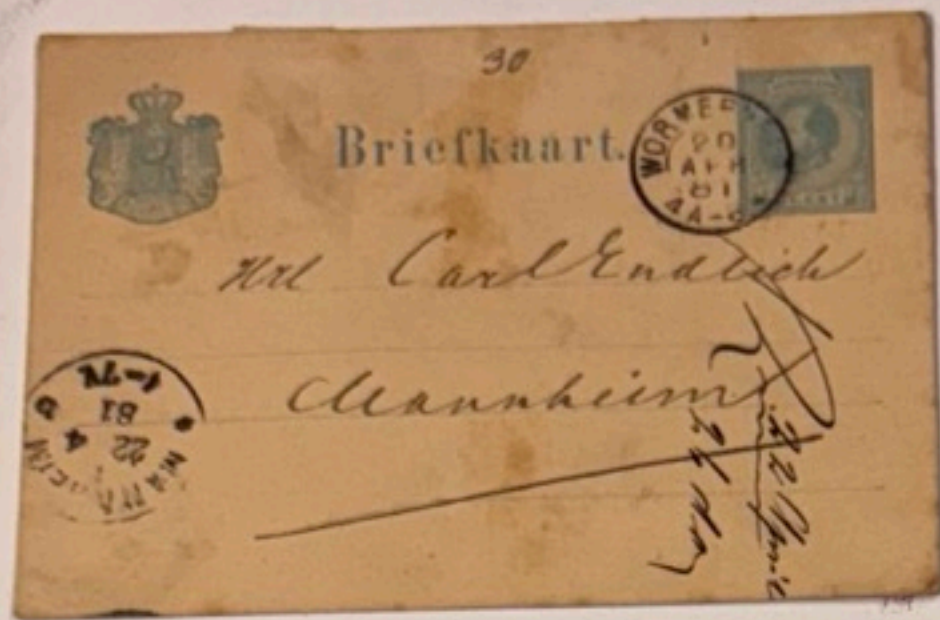 30
Briefkaart.
WORMER
20
APR
81
4A-
Carl Endlich
Mannheim
22 April
26
MANNHEIM
22
4
81
1-7V